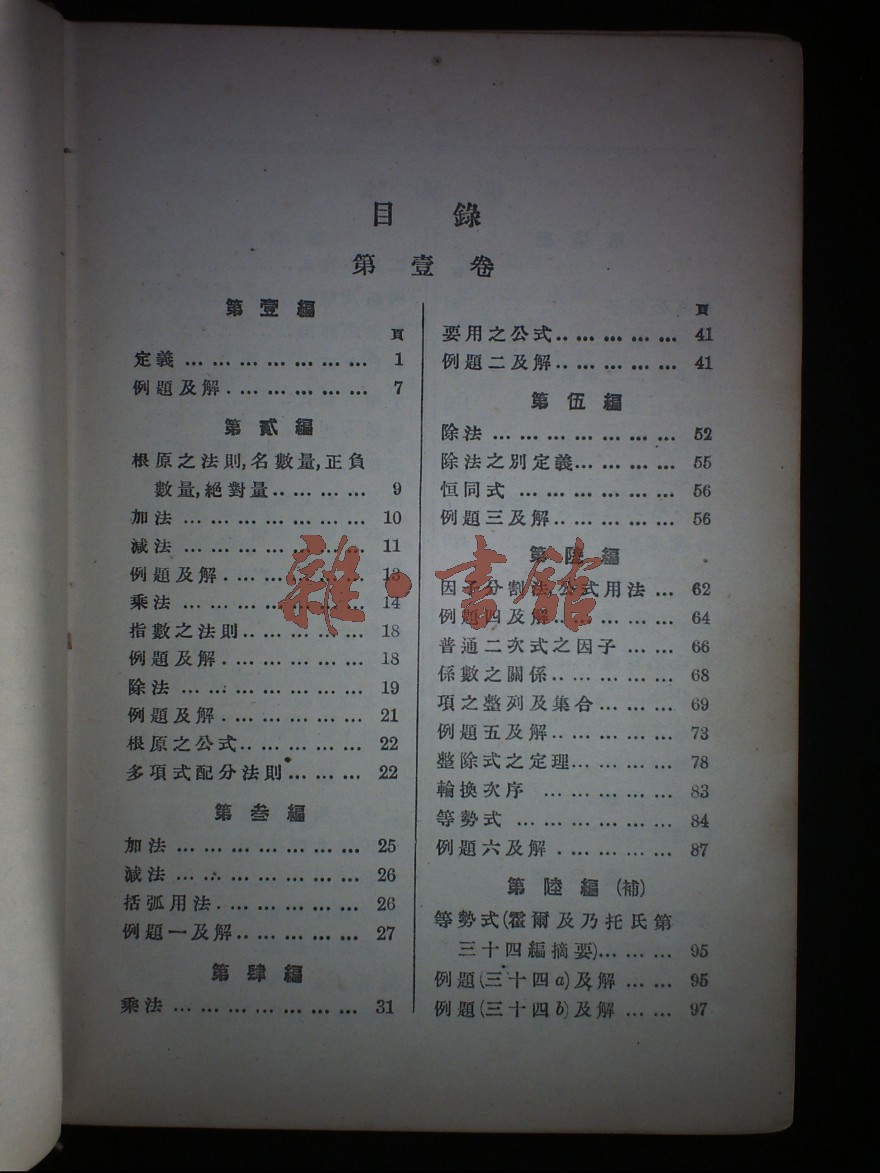 目錄
第壹卷
第壹編
頁
定義 … … … … … … … … 1
例題及解 . … … … … … … 7
第貳編
根原之法則,名數量,正負
數量,絕對量 .. … … … 9
加法 … … … … … … … … 10
減法 … … … … … … … … 11
例題及解 . … … … … … … 13
乘法 … … … … … … … … 14
指數之法則 .. … … … … … 18
例題及解 . … … … … … … 18
除法 … … … … … … … … 19
例題及解 . … … … … … … 21
根原之公式 .. … … … … … 22
多項式配分法則 … … … … 22
第叁編
加法 … … … … … … … … 25
減法 … … … … … … … … 26
括弧用法 . … … … … … … 26
例題一及解 .. … … … … … 27
第肆編
乘法 … … … … … … … … 31
頁
要用之公式 .. … … … … … 41
例題二及解 .. … … … … … 41
第伍編
除法 … … … … … … … … 52
除法之別定義 … … … … … 55
恒同式 … … … … … … … 56
例題三及解 .. … … … … … 56
第陸編
因子分割法,公式用法 … 62
例題四及解 .. … … … … … 64
普通二次式之因子 … … … 66
係數之關係 .. … … … … … 68
項之整列及集合 … … … … 69
例題五及解 .. … … … … … 73
整除式之定理 … … … … … 78
輪換次序 … … … … … … 83
等勢式 … … … … … … … 84
例題六及解 . … … … … … 87
第陸編(補)
等勢式(霍爾及乃托氏第
三十四編摘要) … … … … 95
例題(三十四a)及解 … … 95
例題(三十四b)及解 … … 97
雜·書館